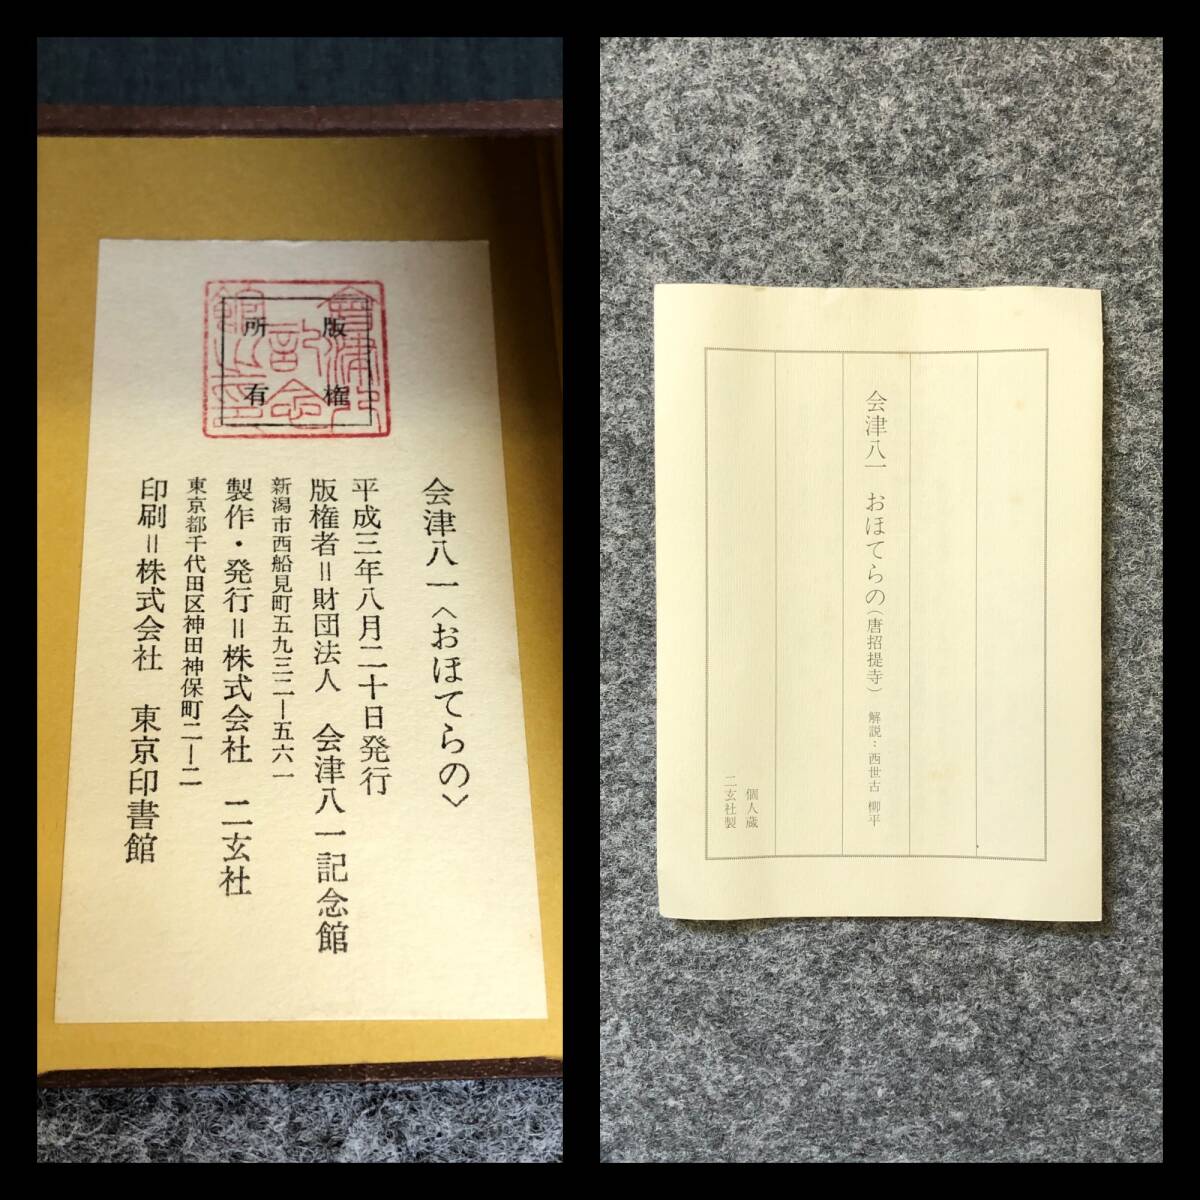 会津八一記念館之印
版権
所有
会津八一〈おほてらの〉
平成三年八月二十日発行
版権者＝財団法人　会津八一記念館
新潟市西船見町五九三二ー五六一
製作・発行＝株式会社　二玄社
東京都千代田区神田神保町二ー二
印刷＝株式会社　東京印書館
会津八一　おほてらの（唐招提寺）　解説：西世古 柳平
個人蔵
二玄社製